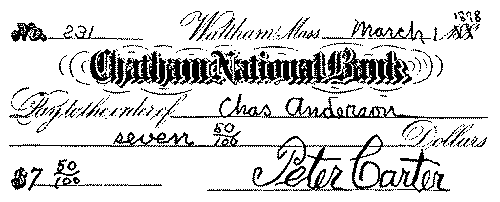 No. 231 Waltham, Mass. March 1 1898
Chatham National Bank
Pay to the order of Chas Anderson
seven 50/100 Dollars
$7 50/100 Peter Carter